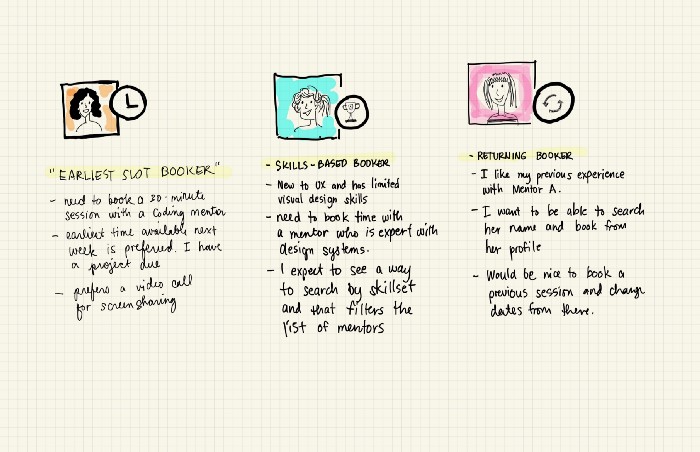 "EARLIEST SLOT BOOKER"
- need to book a 30-minute
session with a Coding mentor
- earliest time available next
week is preferred. I have
a project due
- prefers a video call
for screensharing
- SKILLS-BASED BOOKER
- New to UX and has limited
visual design skills
- need to book time with
a mentor who is expert with
design systems.
- I expect to see a way
to search by skillset
and that filters the
list of mentors
- RETURNING BOOKER
- I like my previous experience
with Mentor A.
- I want to be able to search
her name and book from
her profile
- Would be nice to book a
previous session and change
dates from there.